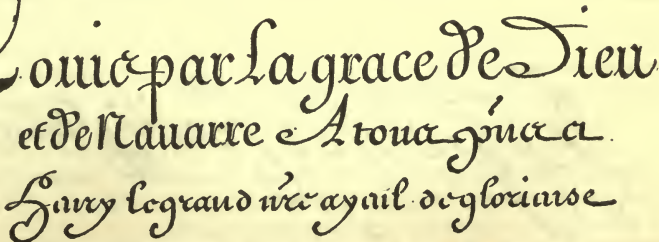 Louis par la grace de Dieu
et de Navarre A tous pñs et a
Henry le grand nr̃e ayeul de glorieuse